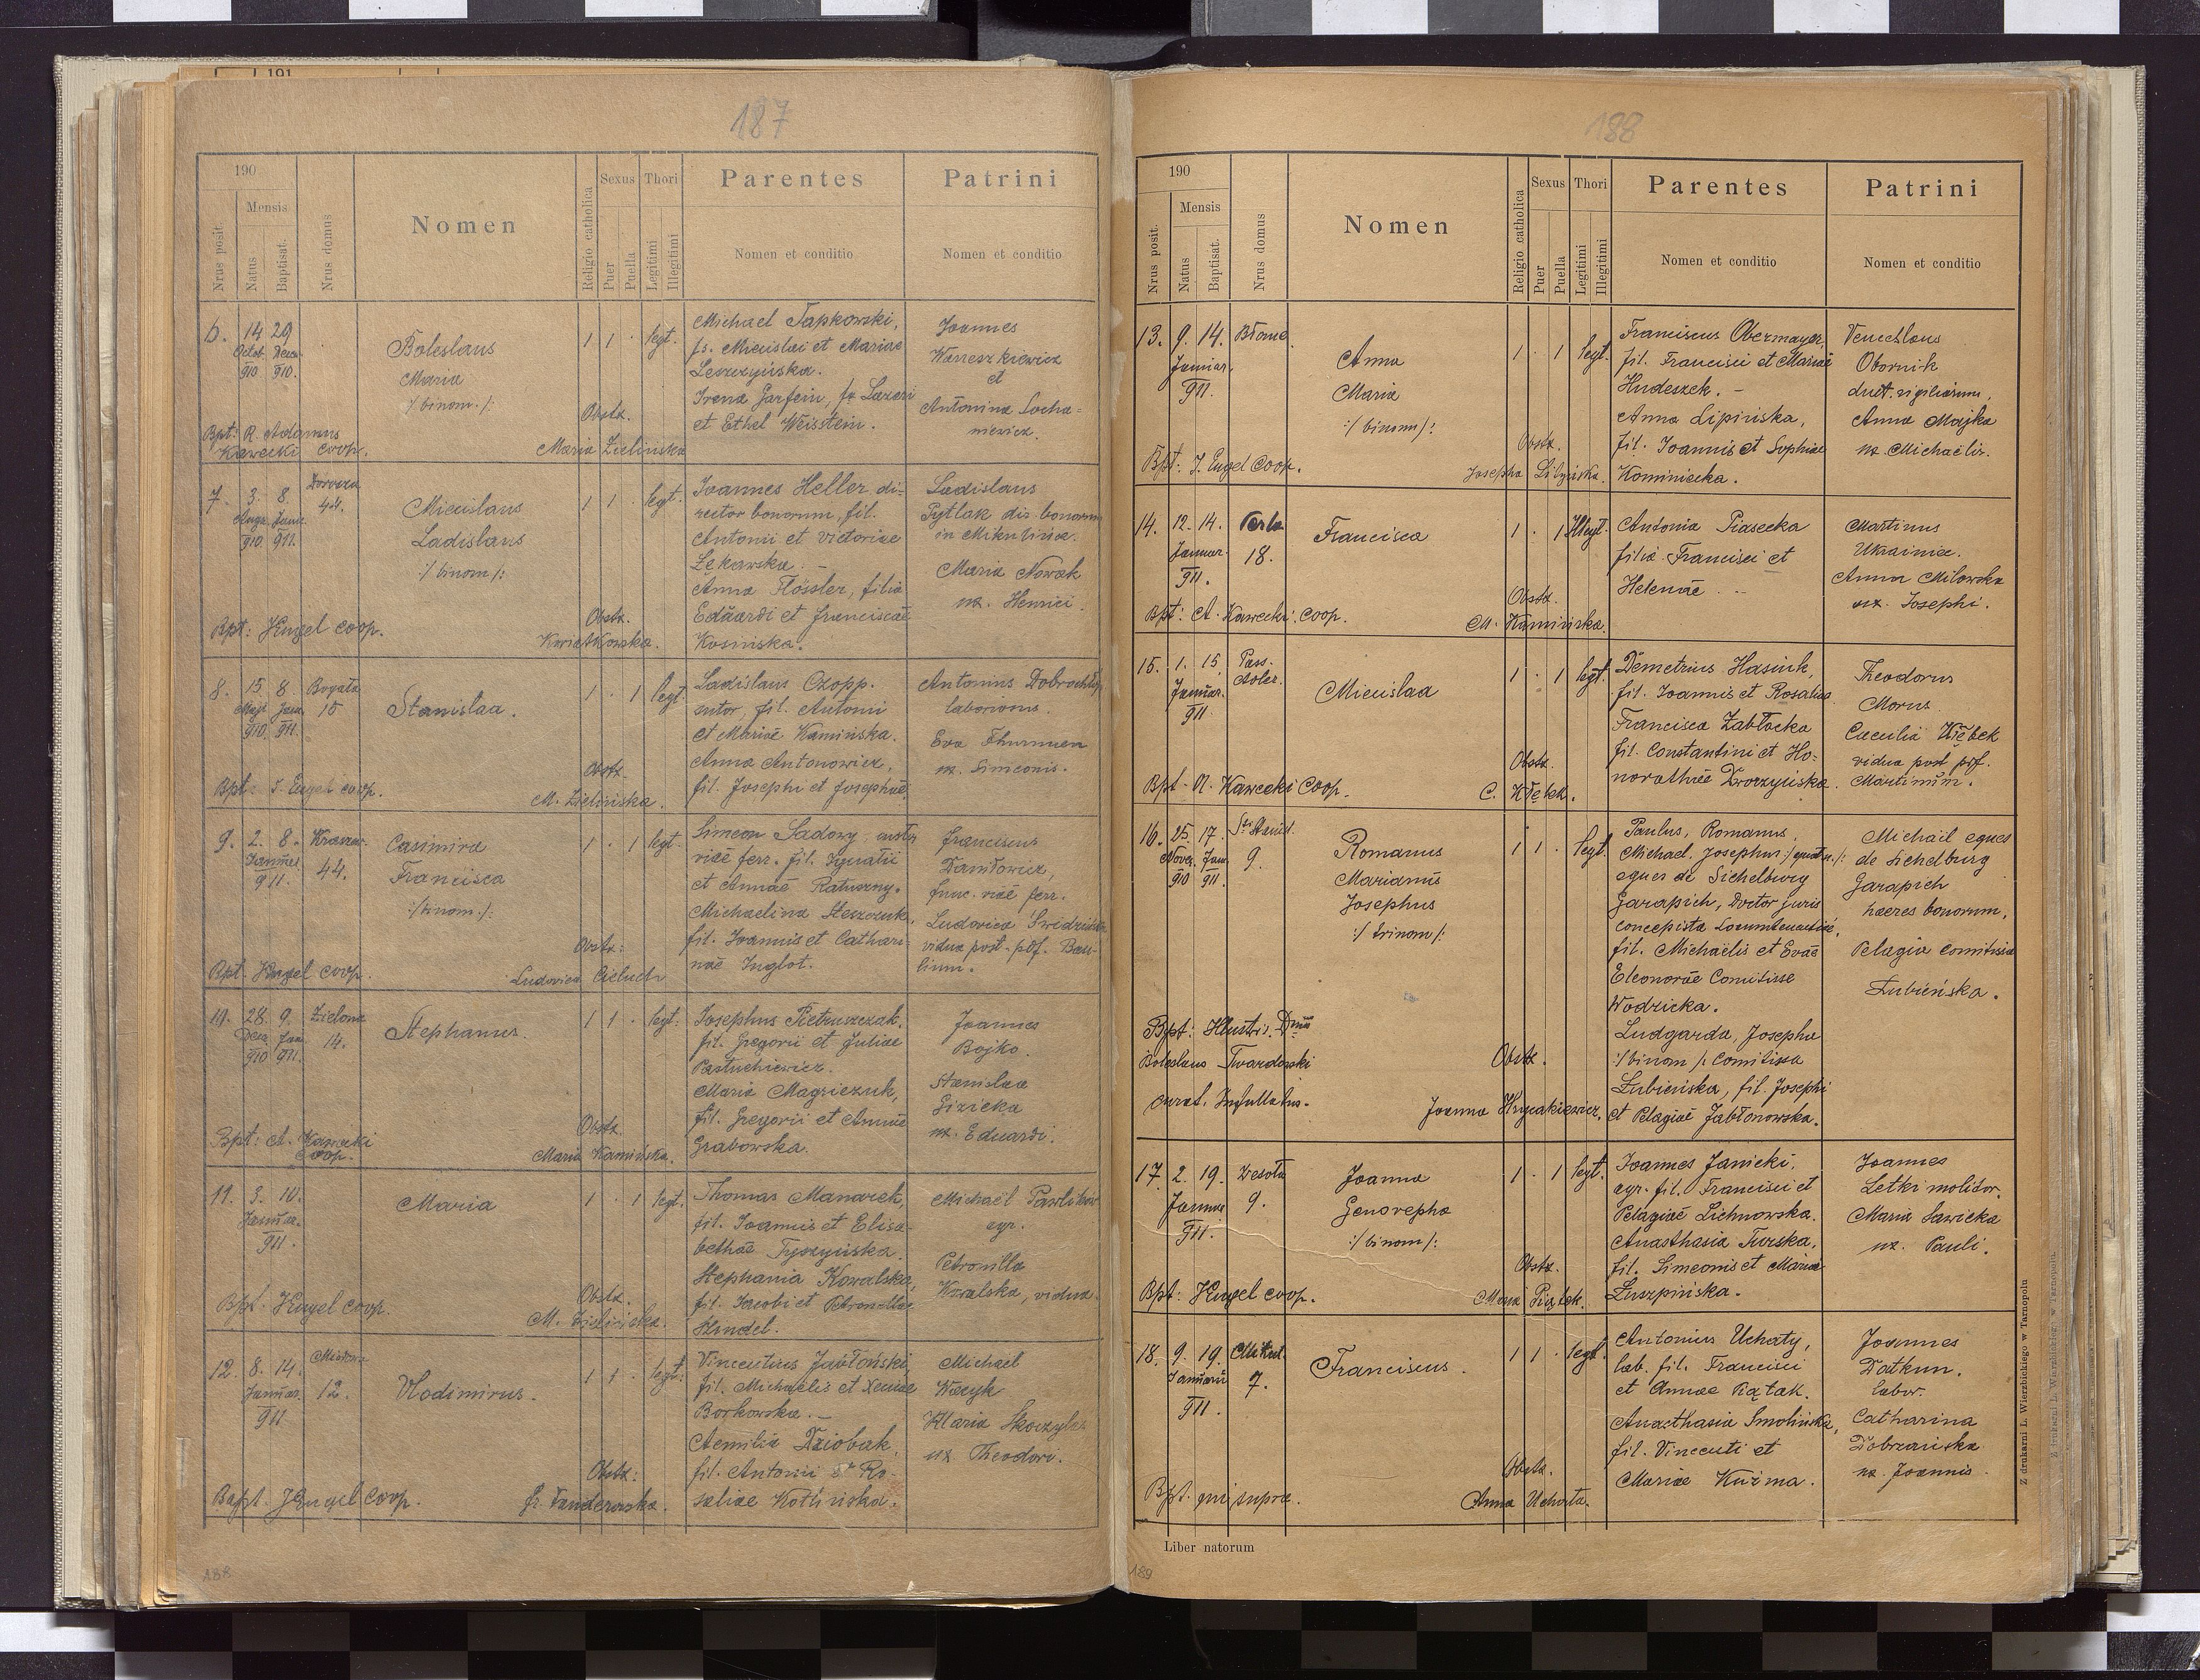 191
187
190
Nrus posit.
Mensis
Natus
Baptisat.
Nrus domus
Nomen
Religio catholica
Sexus
Puer
Puella
Thori
Legitimi
Illegitimi
Parentes
Nomen et conditio
Patrini
Nomen et conditio
6. 14 29
Octob. Dece.
910. 910.
Boleslaus
Maria
:/binom./:
1 1 . legt.
Michael Tapkowski,
fs. Miecislai et Mariae
Leszczyńska.
Irena Garfein, fa Lazari
et Ethel Weisstein.
Joannes
et
Antonina Socha-
niewicz.
Obstx.
Maria Zielińska
Bpt: R. Adamus
Kawecki Coop.
7. 3. 8.
Jaur.
910. 911.
44.
Miecislaus
Ladislaus
:/binom/:
1 1 . legt.
Joannes Heller, di-
rector bonorum, fil.
Antonii et Victoriae
Łękawska. -
Anna Flössler, filia
Eduardi et Franciscae
Kosinska.
Ladislaus
Tytlak dir. bonorum
in Mikulińce.
Maria Nowak
ux. Henrici.
Obstx.
Kwiatkowska.
Bpt: JEngel coop.
8. 15. 8
Maji Jau.
910. 911.
Bogata
15
Stanislaa.
1 . 1 legt.
Ladislaus Czopp.
sutor, fil. Antonii
et Mariae Kamińska.
Anna Antonowicz,
fil. Josephi et Josephae.
Antonius
laboriosus.
Eva Thurmann
ux. Simeonis.
Obstx.
M. Zielińska.
Bpt: J. Engel coop.
9. 2. 8.
911.
44.
Casimira
Francisca
:/binom/:
1 . 1 legt.
Simeon Sadowy, custos
viae ferr. fil. Ignatii
et Annae Ratuszny.
Michaelina Steszczuk,
fil. Joannis et Cathari-
nae Inglot.
Franciscus
Daniłowicz,
func. viae ferr.
Ludovica
vidua post pdf. Bau-
linum.
Obstx:
Ludovica Cieluch
Bpt. JEngel coop.
28. 9.
Dece. Jan.
910. 911.
Zielona
14.
Stephanus.
1 1 . legt:
Josephus Pietruszczak,
fil. Gregorii et Juliae
Pastuchiewicz.
Maria Magriczuk,
fil. Gregorii et Annae
Grabowska.
Joannes
Bojko.
Stanislaa
Gizicka
ux. Eduardi.
Obstx.
Maria Kamińska.
Bpt: A. Kawecki
Coop.
11. 3. 10.
Januar.
911.
Maria
1 . 1 legt.
Thomas Manarek,
fil. Joannis et Elisa-
bethae Tyszyńska.
Stephania Kowalska,
fil. Jacobi et Petronellae
Hundel.
Michaël
agr.
Petronilla
Kowalska, vidua.
Obstx.
M. Zielińska.
Bpt. JEngel coop.
12. 8. 14.
Januar.
911
12.
Vlodimirus.
1 1 . legt:
Vincentius Jabłoński,
fil. Michaelis et Xeniae
Borkowska. -
Aemilia Dziobak,
fil. Antonii et Ro-
saliae Kotlińska.
Michael
Waryk
Maria
ux Theodori.
Obstx:
Fr. Fanderowska.
Bapt. JEngel coop.
188
188
190
Nrus posit.
Mensis
Natus
Baptisat.
Nrus domus
Nomen
Religio catholica
Sexus
Puer
Puella
Thori
Legitimi
Illegitimi
Parentes
Nomen et conditio
Patrini
Nomen et conditio
13. 9. 14.
Januar.
911.
Błonie
Anna
Maria
:/binom/:
1 . 1 legt.
Franciscus Obermayer,
fil. Francisci et Mariae
Hudeszek. -
Anna Lipińska,
fil. Joannis et Sophiae
Kominiecka.
Venceslaus
Obornik
duct. vigiliarum,
Anna Majka
ux. Michaëlis.
Obstx.
Josepha
Bpt: J. Engel Coop.
14. 12. 14.
Januar.
911.
Perla
18.
Francisca
1 . 1 Illegt.
Antonia Piasecka
filia Francisci et
Helenae. --
Martinus
Ukrainiec.
Anna Milowska
ux. Josephi.
Obstx.
M. Kamińska.
Bpt: A. Kawecki Coop.
15. 1. 15
Januar.
911.
Pass.
Adler.
Miecislaa
1 . 1 legt.
Demetrius Hasiuk,
fil. Joannis et Rosaliae
Francisca Zabłocka
fil. Constantini et Ho-
norathae Dworzyńska.
Theodorus
Morus
Caecilia Kłębek
vidua post pdf.
Martinum.
Obstx.
C. Kłębek.
Bpt - A. Kawecki Coop.
16. 25 17.
Nove. Jan.
910 911.
9.
Romanus
Marianus
Josephus
:/trinom/:
1 1 . legt.
Paulus, Romanus,
Michael, Josephus :/quatr./:
eques de Sichelburg
Garapich, Doctor juris
concepista Locumtenentiae,
fil. Michaëlis et Evae
Eleonorae Comitisse
Wodzicka.
Ludgarda, Josepha
:/binom/: Comitissa
Łubieńska, fil. Josephi
et Pelagiae Jabłonowska.
Michaël eques
de Sichelburg
Garapich
haeres bonorum,
Pelagia comitissa
Łubieńska.
Obstx.
Joanna Hrynakiewicz.
Bpt: Illustris. Dmus
Boleslaus Twardowski
curat. Infullatus.
17. 2. 19.
911.
Wesoła
9.
Joanna
Genovepha
:/binom/:
1 . 1 legt.
Joannes Janicki,
agr. fil. Francisci et
Pelagiae Lichnowska.
Anasthasia Turska,
fil. Simeonis et Mariae
Łuszpińska.
Joannes
Letki molitor.
Maria Sawicka
ux. Pauli.
Obstx.
Maria Piątek.
Bpt: JEngel coop.
18. 9. 19.
Januarii
911.
Mikul.
7.
Franciscus.
1 1 . legt.
Antonius Uchaty,
lab. fil. Francisci
et Annae Piątak.
Anasthasia Smolińska,
fil. Vincenti et
Mariae Kuźma.
Joannes
Datkun.
labor.
Catharina
Dobrzańska
ux. Joannis
Obstx.
Anna Uchata.
Bpt. qui supra.
Liber natorum
189
Z drukarni L. Wierzbickiego w Tarnopolu